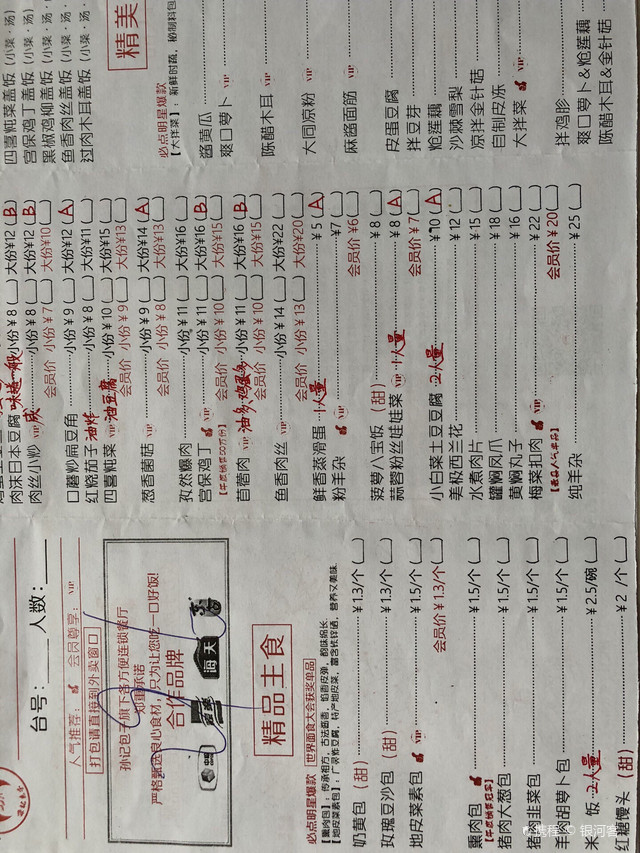 台号：____人数：____
人气推荐： 会员尊享：VIP
打包请直接到外卖窗口
孙记包子旗下各方便连锁餐厅
郑重承诺
严格甄选良心食材，只为让您吃一口好饭！
合作品牌
海天
精品主食
必点明星爆款 世界面食大会获奖单品
奶黄包（甜）¥1.3/个( )
玫瑰豆沙包（甜）¥1.3/个( )
地皮菜素包 VIP ¥1.5/个( )
会员价¥1.3/个( )
熏肉包 ¥1.5/个( )
【年度销售冠军】
猪肉大葱包 ¥1.5/个( )
猪肉韭菜包 ¥1.5/个( )
羊肉胡萝卜包 ¥1.5/个( )
米 饭 2人量 ¥2.5/碗( )
红糖馒头（甜）¥2/个( )
肉沫日本豆腐 味道一般 小份¥8( )大份¥12(B)
肉丝小炒 VIP 咸 小份¥8( )大份¥12(B)
会员价 小份¥7( )大份¥10( )
口蘑炒扁豆角 小份¥9( )大份¥12(A)
红烧茄子 油炸 小份¥8( )大份¥11( )
四喜炖菜 VIP 油豆腐 小份¥10( )大份¥15( )
会员价 小份¥9( )大份¥13( )
葱香菌菇 VIP 小份¥9( )大份¥14(A)
会员价 小份¥8( )大份¥13( )
孜然爆肉 小份¥11( )大份¥16( )
宫保鸡丁 VIP 小份¥11( )大份¥16(B)
【年度销售90万份】 会员价 小份¥10( )大份¥15( )
苜蓿肉 VIP 油多,鸡蛋多 小份¥11( )大份¥16(B)
会员价 小份¥10( )大份¥15( )
鱼香肉丝 VIP 小份¥14( )大份¥22( )
会员价 小份¥13( )大份¥20( )
鲜香蒸滑蛋 1人量 ¥5(A)
粉羊杂 VIP ¥7( )
会员价¥6( )
菠萝八宝饭（甜）¥8( )
蒜蓉粉丝娃娃菜 VIP 1人量 ¥8(A)
会员价¥7( )
小白菜土豆豆腐 2人量 ¥10(A)
美极西兰花 ¥12( )
水煮肉片 ¥15( )
罐焖凤爪 ¥18( )
黄焖丸子 ¥16( )
梅菜扣肉 VIP ¥22( )
会员价¥20( )
纯羊杂 ¥25( )
四喜炖菜盖饭（小菜·汤）
宫保鸡丁盖饭（小菜·汤）
黑椒鸡柳盖饭（小菜·汤）
鱼香肉丝盖饭（小菜·汤）
过肉木耳盖饭（小菜·汤）
精美
必点明星爆款
【大拌菜】：新鲜时蔬，秘制料包
酱黄瓜
爽口萝卜 VIP
陈醋木耳 VIP
大同凉粉 VIP
麻酱面筋 VIP
皮蛋豆腐
拌豆芽
炝莲藕
沙棘雪梨
凉拌金针菇
自制皮冻
大拌菜 VIP
拌鸡胗
爽口萝卜&炝莲藕
陈醋木耳&金针菇
携程@银河客